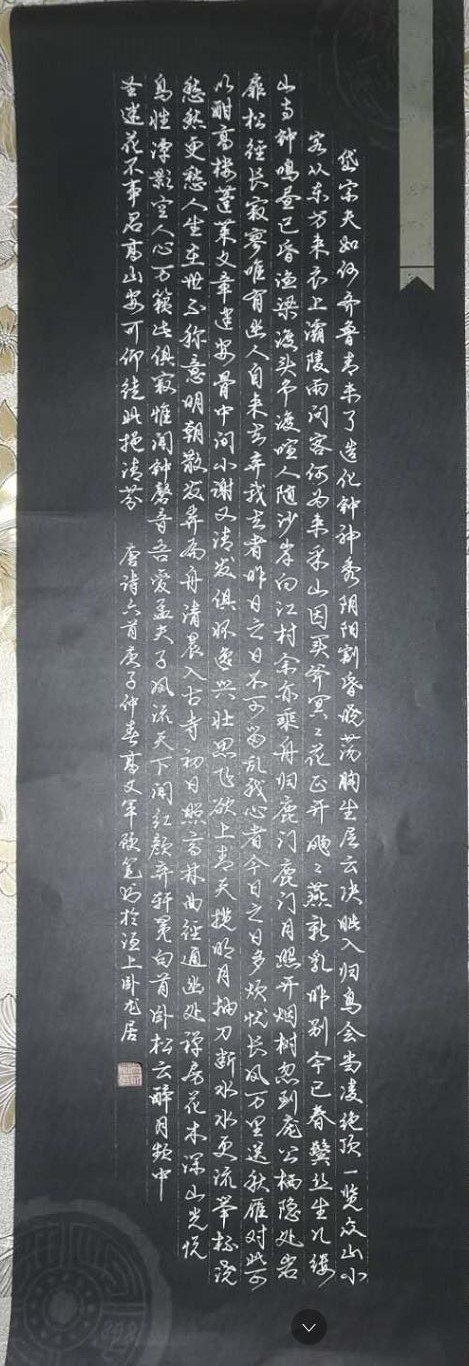 岱宗夫如何齐鲁青未了造化钟神秀阴阳割昏晓荡胸生层云决眦入归鸟会当凌绝顶一览众山小
客从东方来衣上灞陵雨问客何为来采山因买斧冥〻花正开飏〻燕新乳昨别今已春鬓丝生几缕
山寺钟鸣昼已昏渔梁渡头争渡喧人随沙岸向江村余亦乘舟归鹿门鹿门月照开烟树忽到庞公栖隐处岩
扉松径长寂寥唯有幽人自来去弃我去者昨日之日不可留乱我心者今日之日多烦忧长风万里送秋雁对此可
以酣高楼蓬莱文章建安骨中间小谢又清发俱怀逸兴壮思飞欲上青天揽明月抽刀断水水更流举杯浇
愁愁更愁人生在世不称意明朝散发弄扁舟清晨入古寺初日照高林曲径通幽处禅房花木深山光悦
鸟性潭影空人心万籁此俱寂惟闻钟磬音吾爱孟夫子风流天下闻红颜弃轩冕白首卧松云醉月频中
圣迷花不事君高山安可仰徒此挹清芬 唐诗六首庚子仲春高文军硕笔书于洹上卧龙居